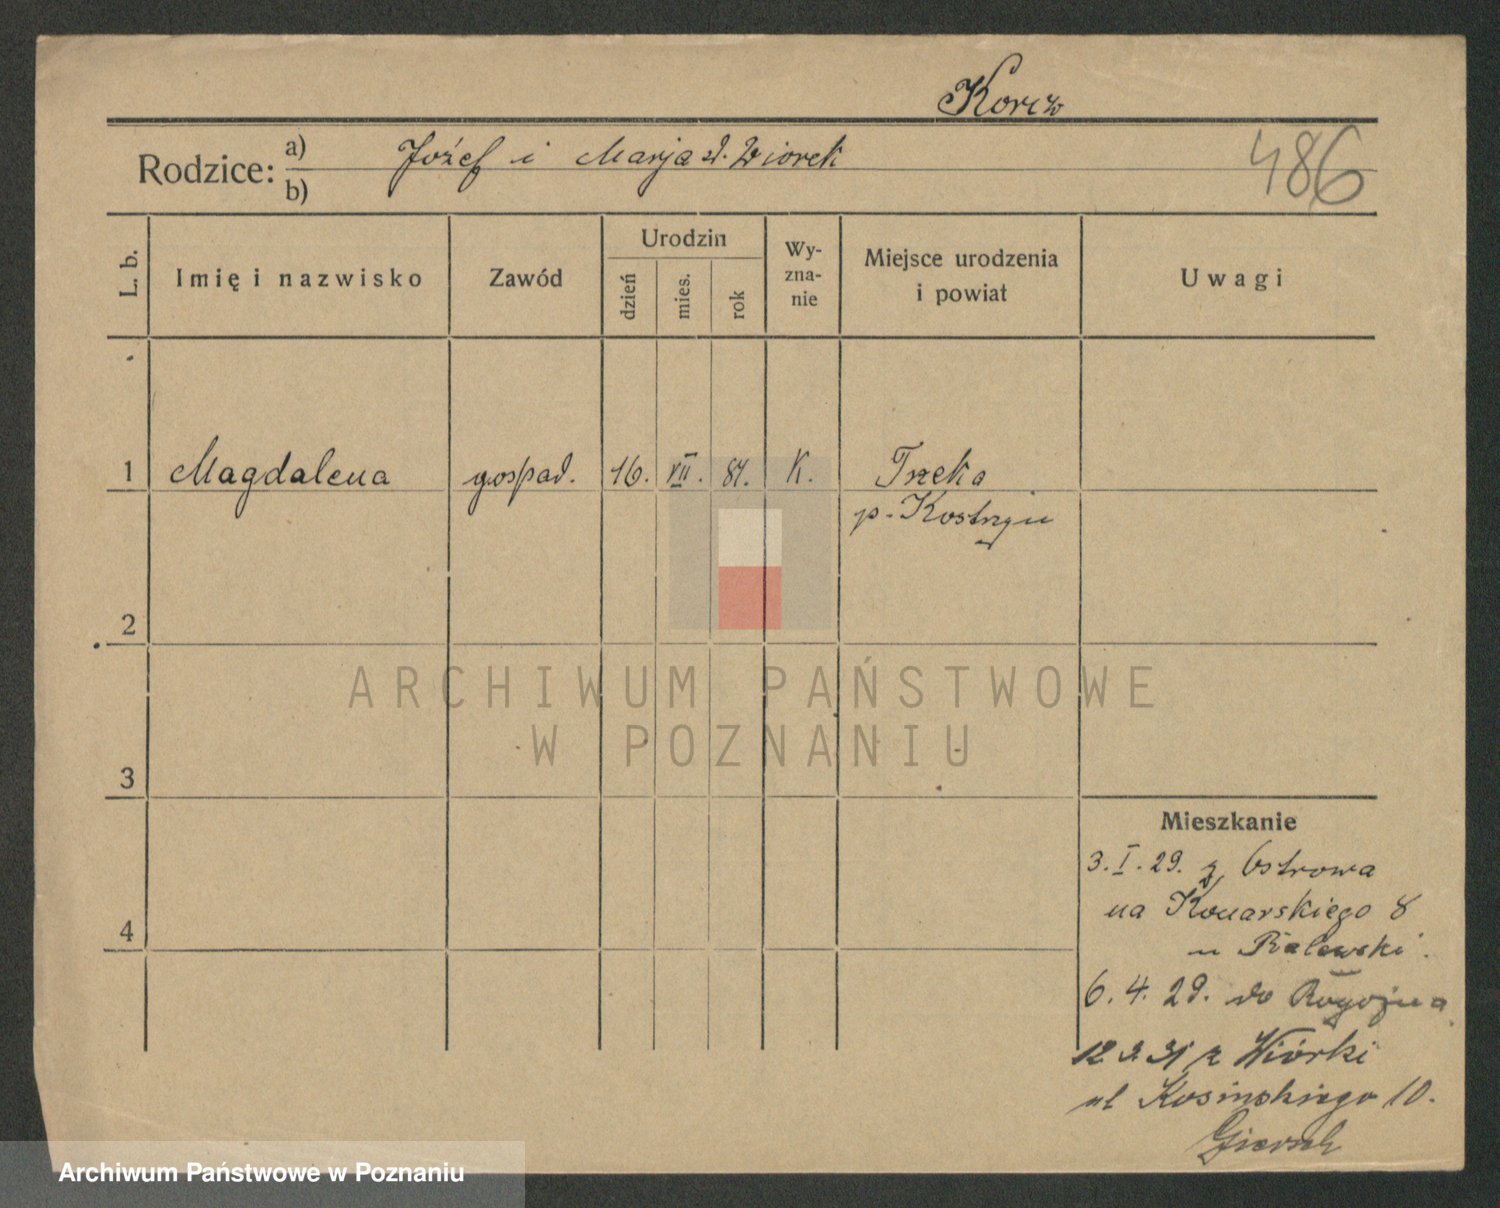 Korcz
486
Rodzice: a) Józef i Marja d. Wiorek
b)
L. b. Imię i nazwisko Zawód Urodzin dzień mies. rok Wyznanie Miejsce urodzenia i powiat Uwagi
1 Magdalena gospod. 16. VII. 87. K. Trzeka
p. Kostrzyn
2
3
4
Mieszkanie
3. I. 29. z Ostrowa
na Konarskiego 8
u
6. 4. 29. do Rogoźna
12 z Wiórki
ul Kosińskiego 10.
ARCHIWUM PAŃSTWOWE
W POZNANIU
Archiwum Państwowe w Poznaniu